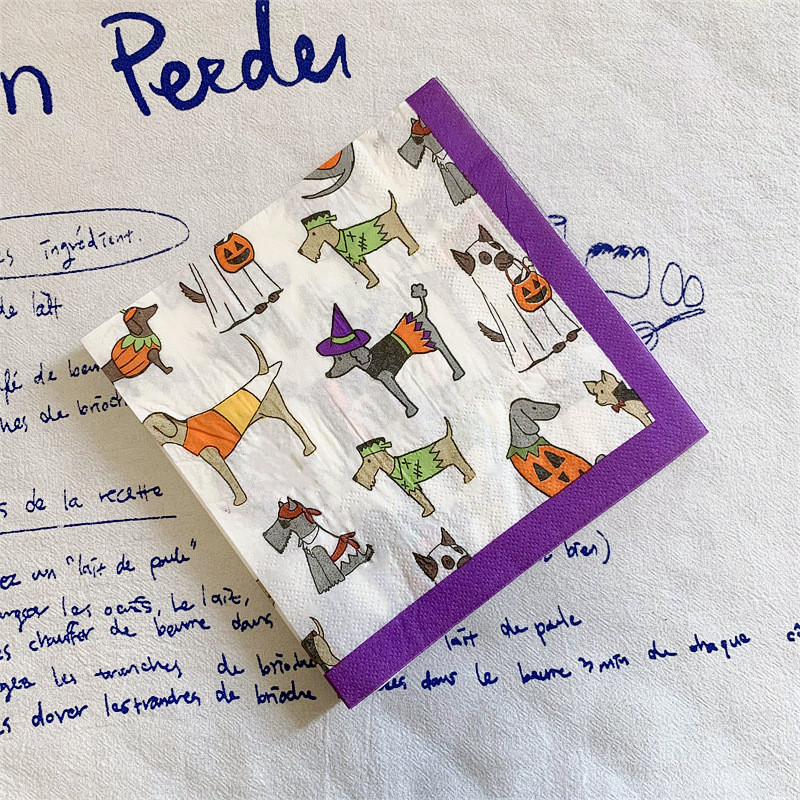 n Perdu
s ingrédient.
de lait
afé de beu
ches de brioch
s de la recette
ez un "lait de poule"
les œufs, le lait,
bien)
s chauffer de beurre dans
lait de poule
les tranches de brioche
dans le beurre 3 min de chaque
s dorer les tranches de brioche